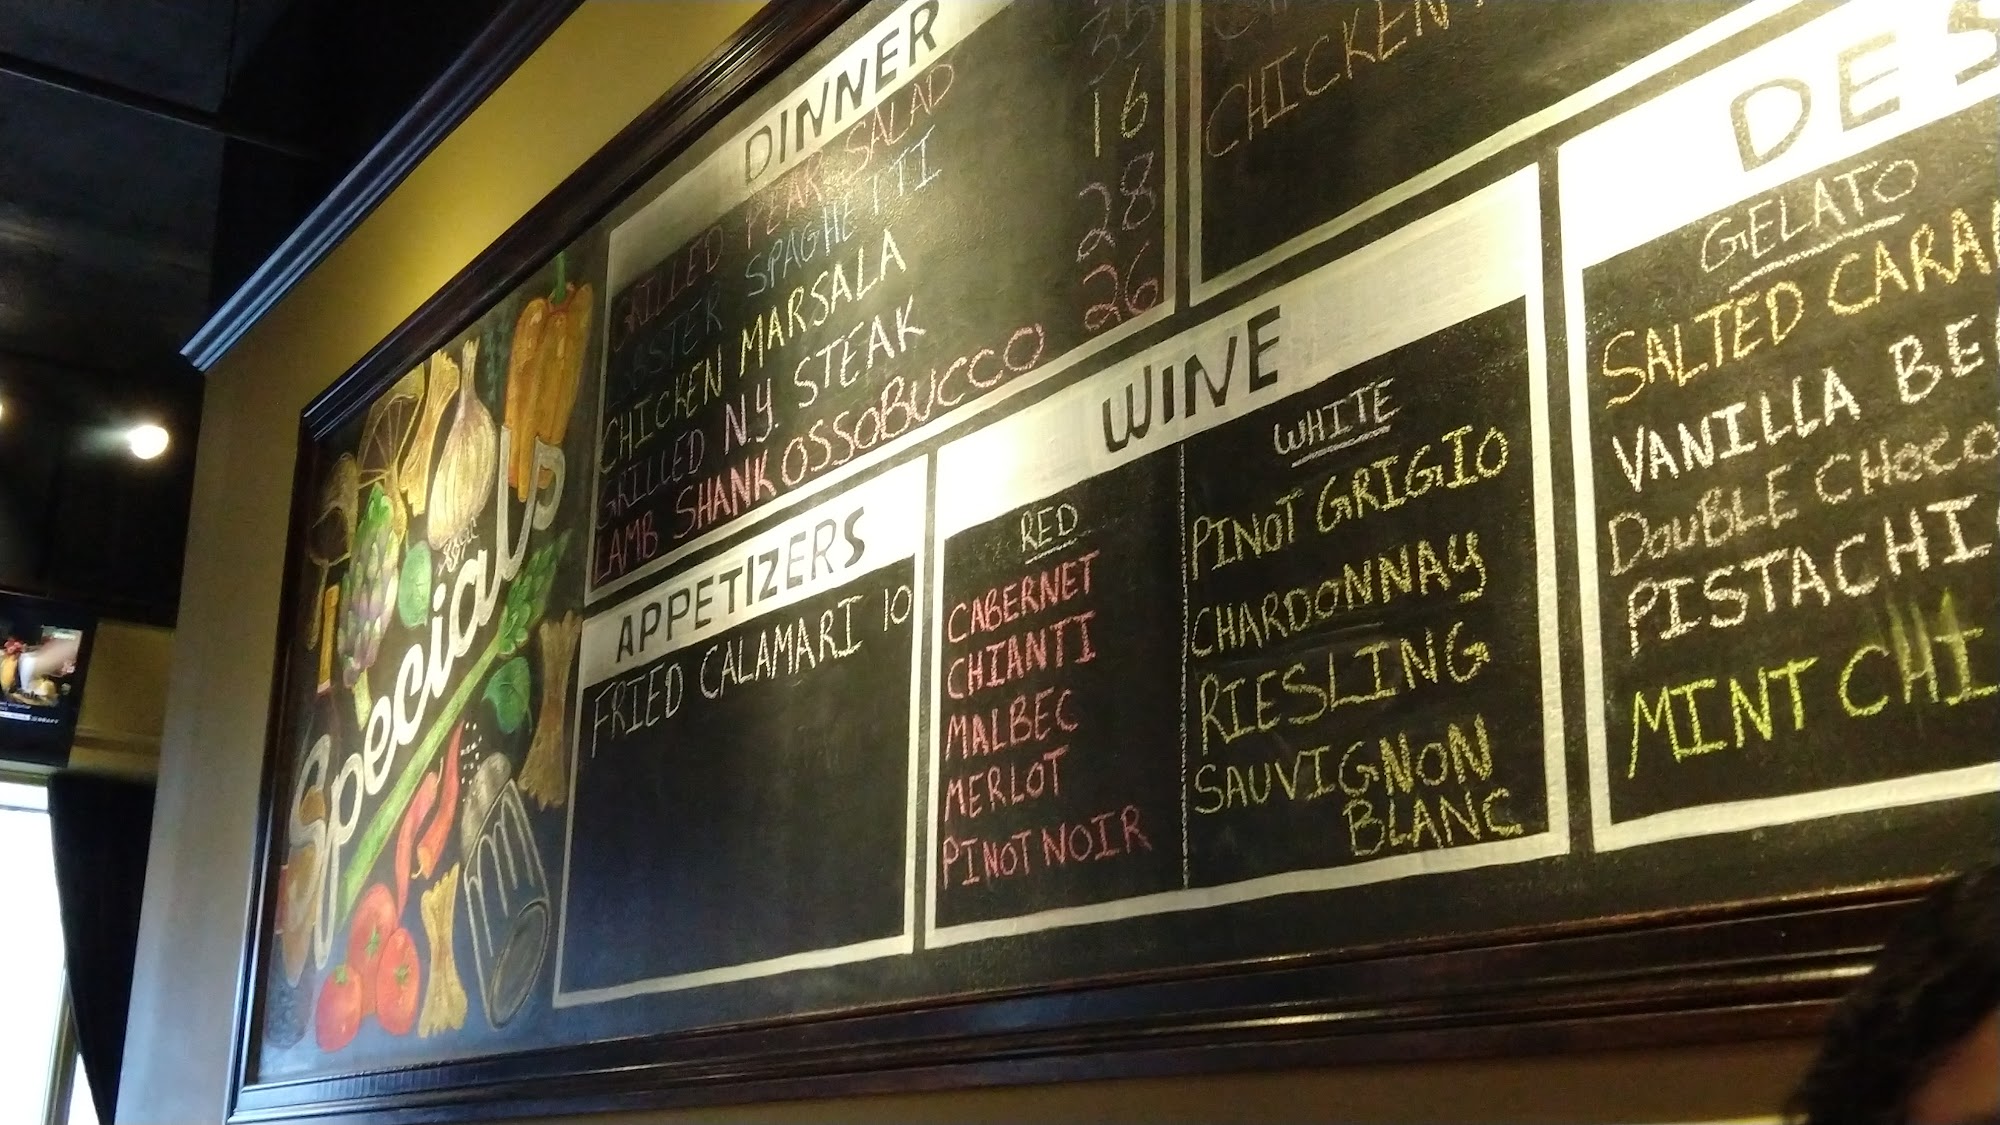 Specials
DINNER
GRILLED PEAR SALAD
LOBSTER SPAGHETTI 35
CHICKEN MARSALA 16
GRILLED N.Y. STEAK 28
LAMB SHANK OSSOBUCCO 26
APPETIZERS
FRIED CALAMARI 10
CHICKEN
WINE
RED
CABERNET
CHIANTI
MALBEC
MERLOT
PINOT NOIR
WHITE
PINOT GRIGIO
CHARDONNAY
RIESLING
SAUVIGNON
BLANC
DES
GELATO
SALTED CARA
VANILLA BE
DOUBLE CHOCO
PISTACHI
MINT CHI